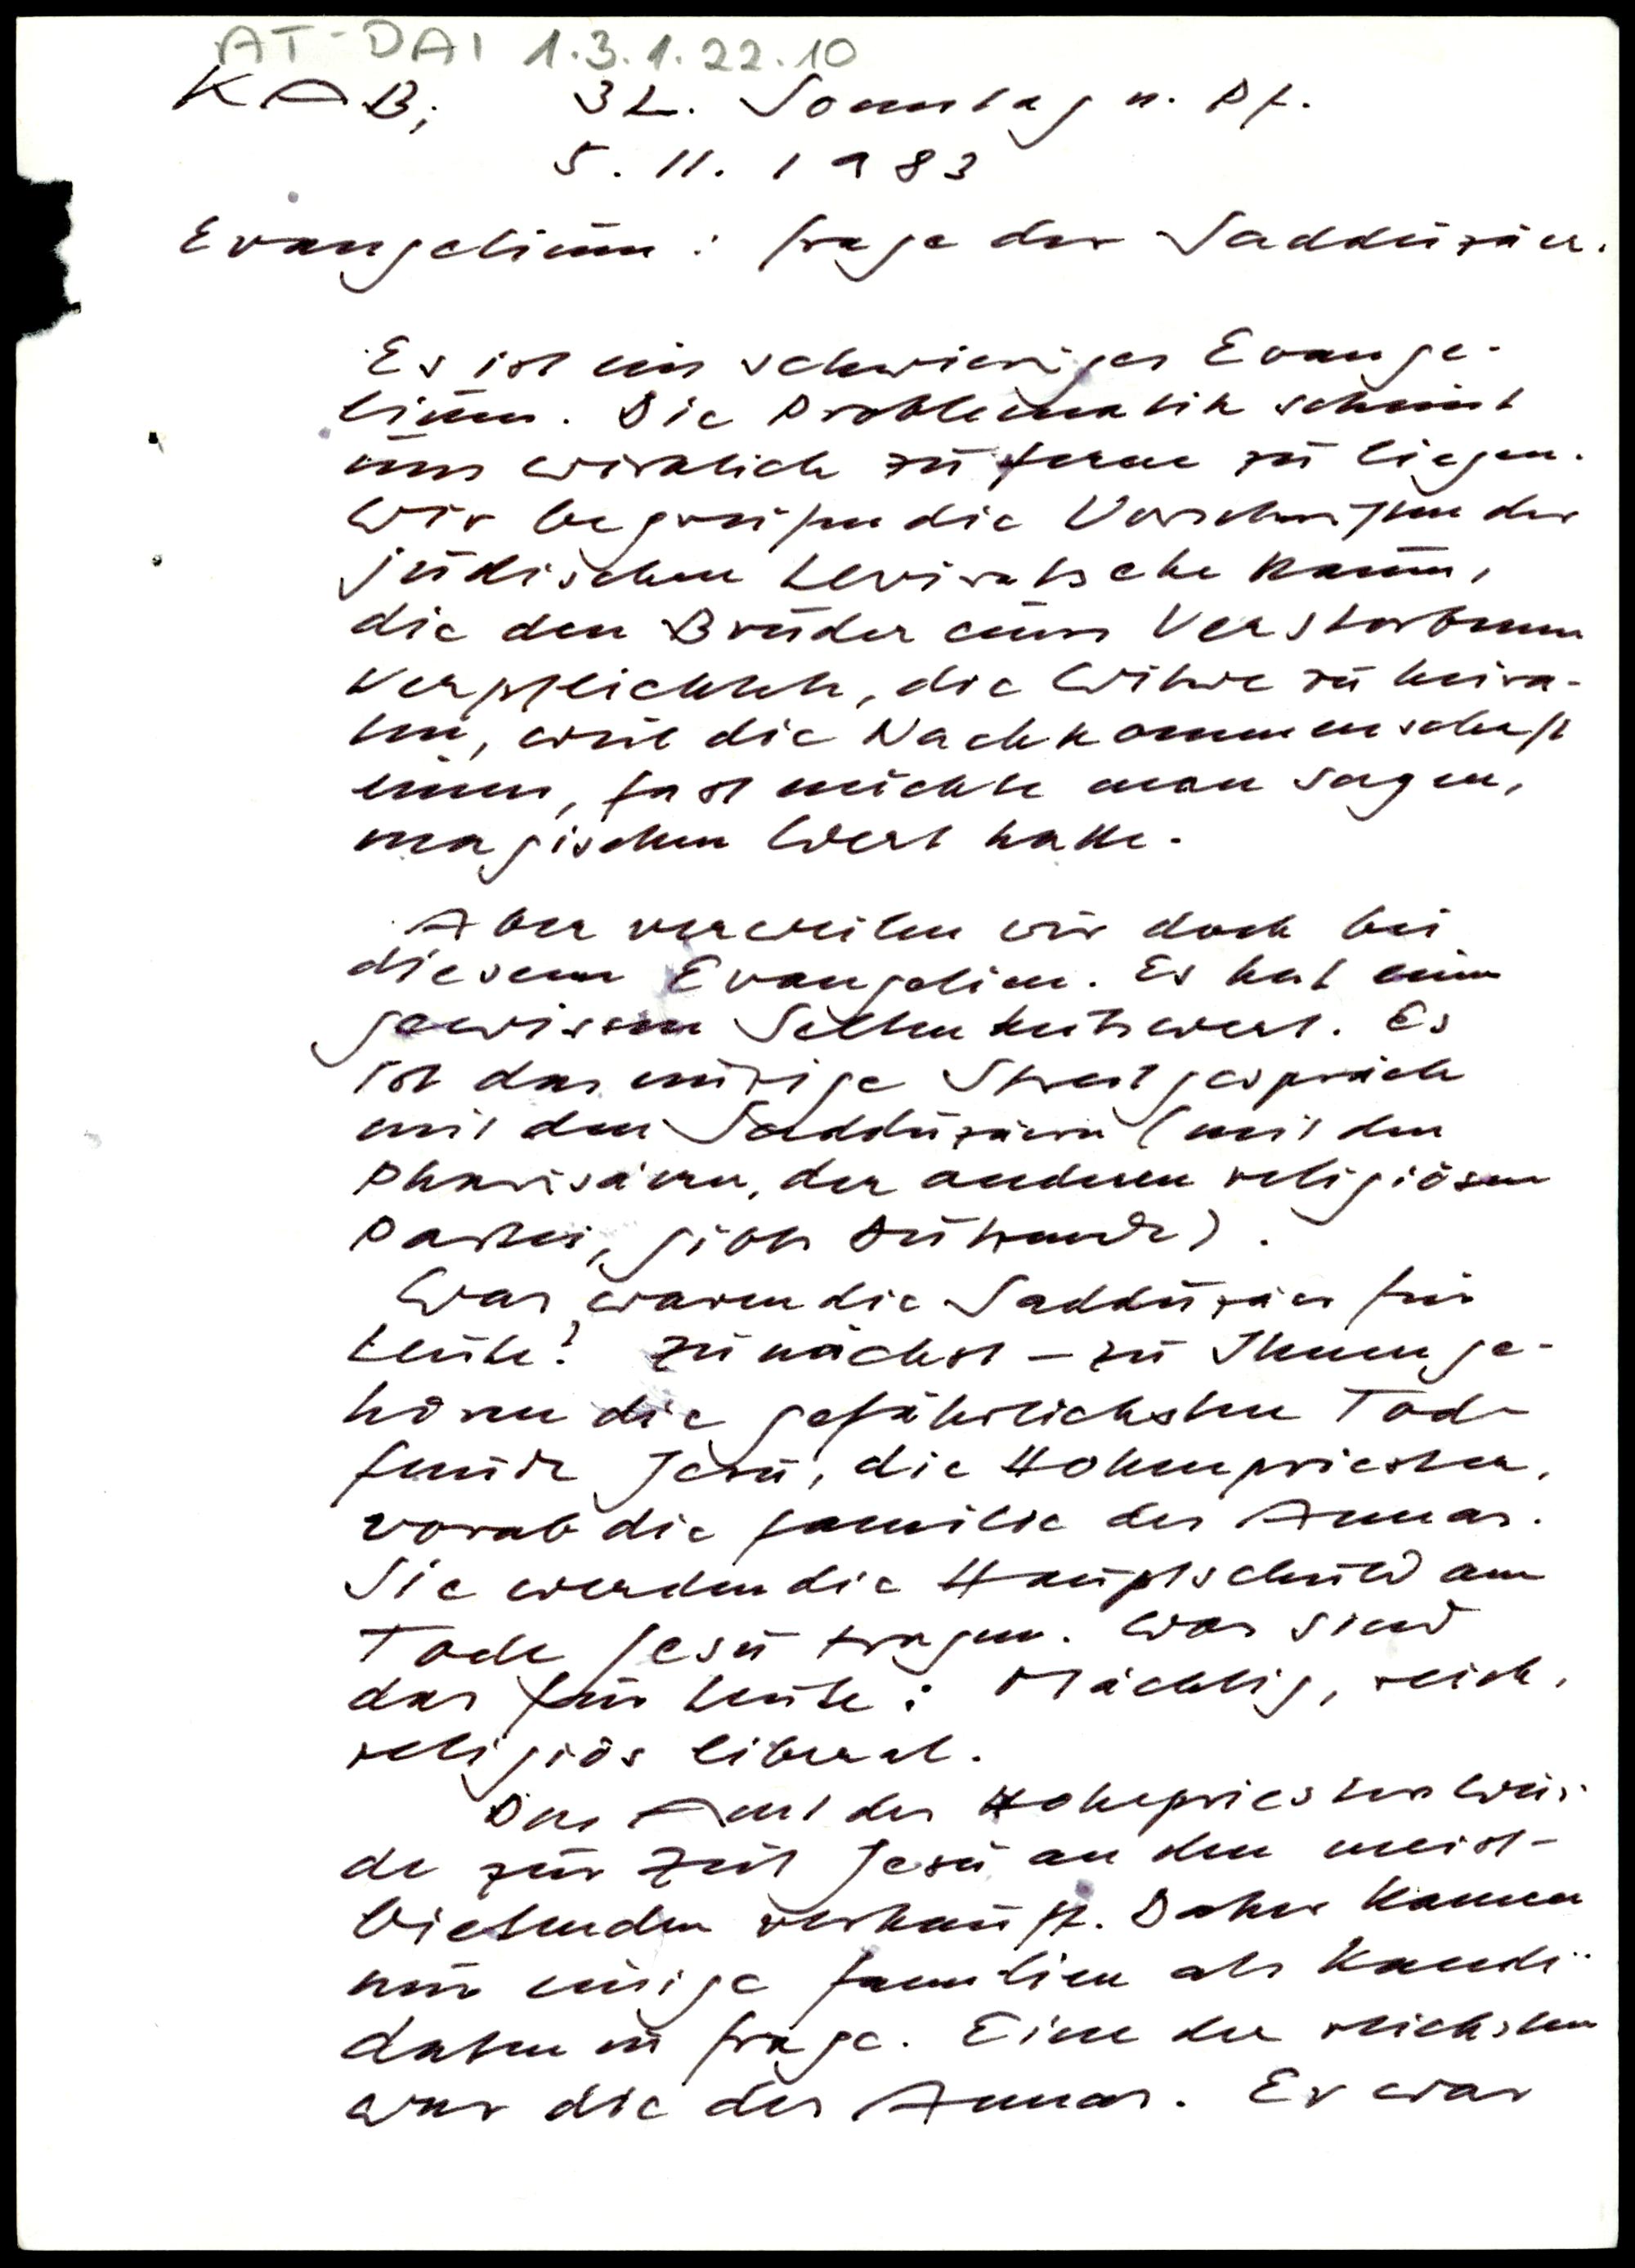 AT-DAI 1.3.1.22.10
KAB, 32. Sonntag n. Pf.
5. 11. 1983
Evangelium: Frage der Sadduzäer.
Es ist ein schwieriges Evange-
lium. Die Problematik scheint
uns wirklich zu ferne zu liegen.
Wir begreifen die Vorschriften der
jüdischen Leviratsehe kaum,
die den Bruder eines Verstorbenen
verpflichtete, die Witwe zu heira-
ten, weil die Nachkommenschaft
einen, fast möchte man sagen,
magischen Wert hatte.
Aber verweilen wir doch bei
diesem Evangelium. Es hat einen
gewissen Seltenheitswert. Es
ist das einzige Streitgespräch
mit den Sadduzäern (mit den
Pharisäern, der anderen religiösen
Partei, gibts Dutzende).
Was waren die Sadduzäer für
Leute? Zunächst – zu Ihnen ge-
hören die gefährlichsten Tod-
feinde Jesu, die Hohenpriester,
vorab die Familie des Annas.
Sie werden die Hauptschuld am
Tode Jesu tragen. Was sind
das für Leute: Mächtig, reich,
religiös liberal.
Das Amt des Hohepriesters wur-
de zur Zeit Jesu an den meist-
bietenden verkauft. Daher kamen
nur einige Familien als Kandi-
daten in Frage. Eine der reichsten
war die des Annas. Er war